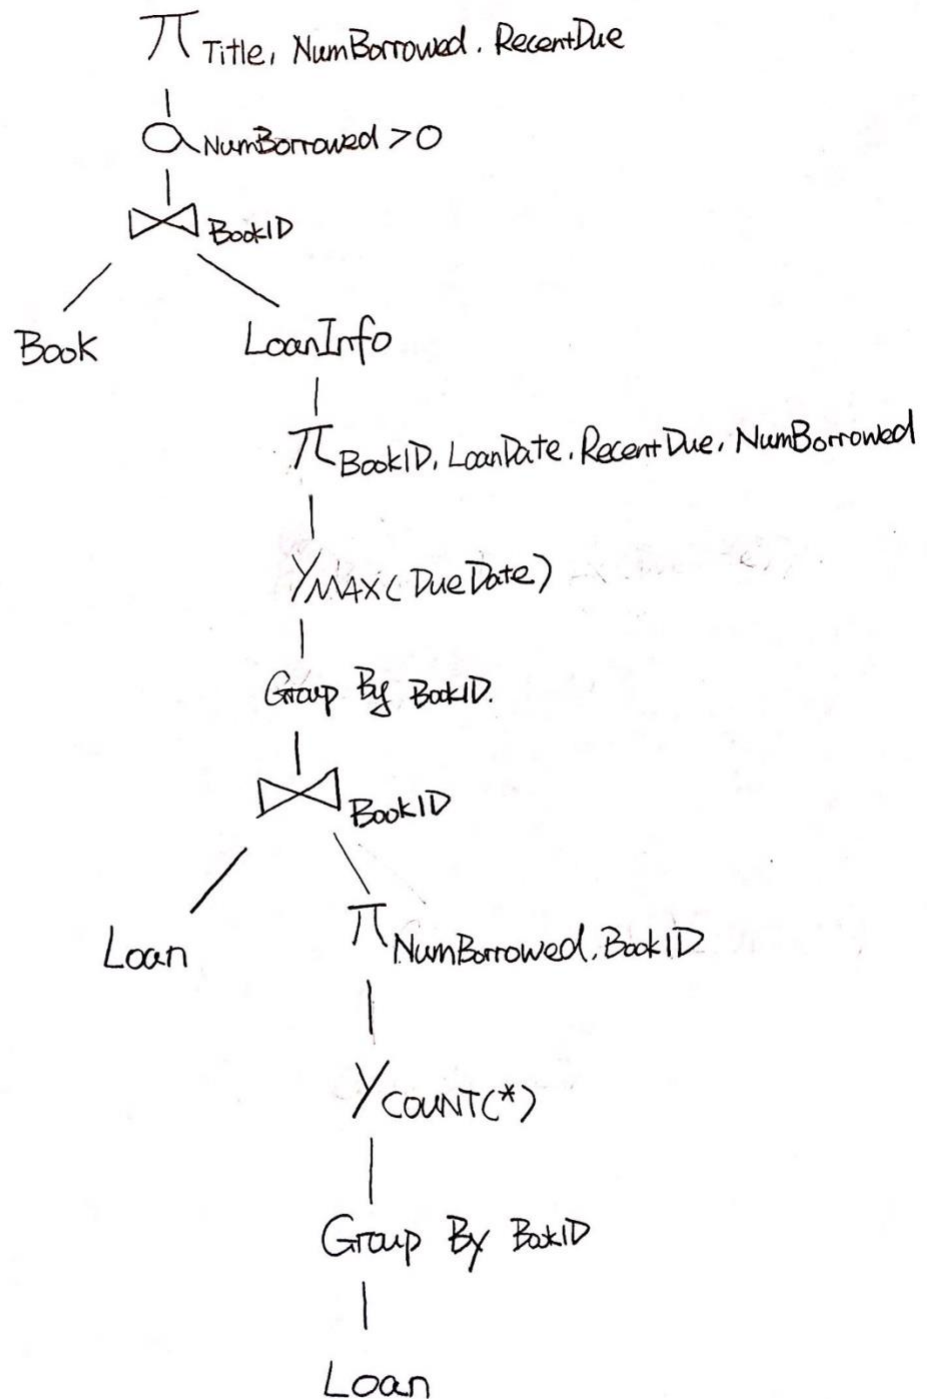 π Title, NumBorrowed, RecentDue
σ NumBorrowed > 0
⋈ BookID
Book LoanInfo
π BookID, LoanDate, RecentDue, NumBorrowed
γ MAX(DueDate)
Group By BookID.
⋈ BookID
Loan π NumBorrowed, BookID
γ COUNT(*)
Group By BookID
Loan